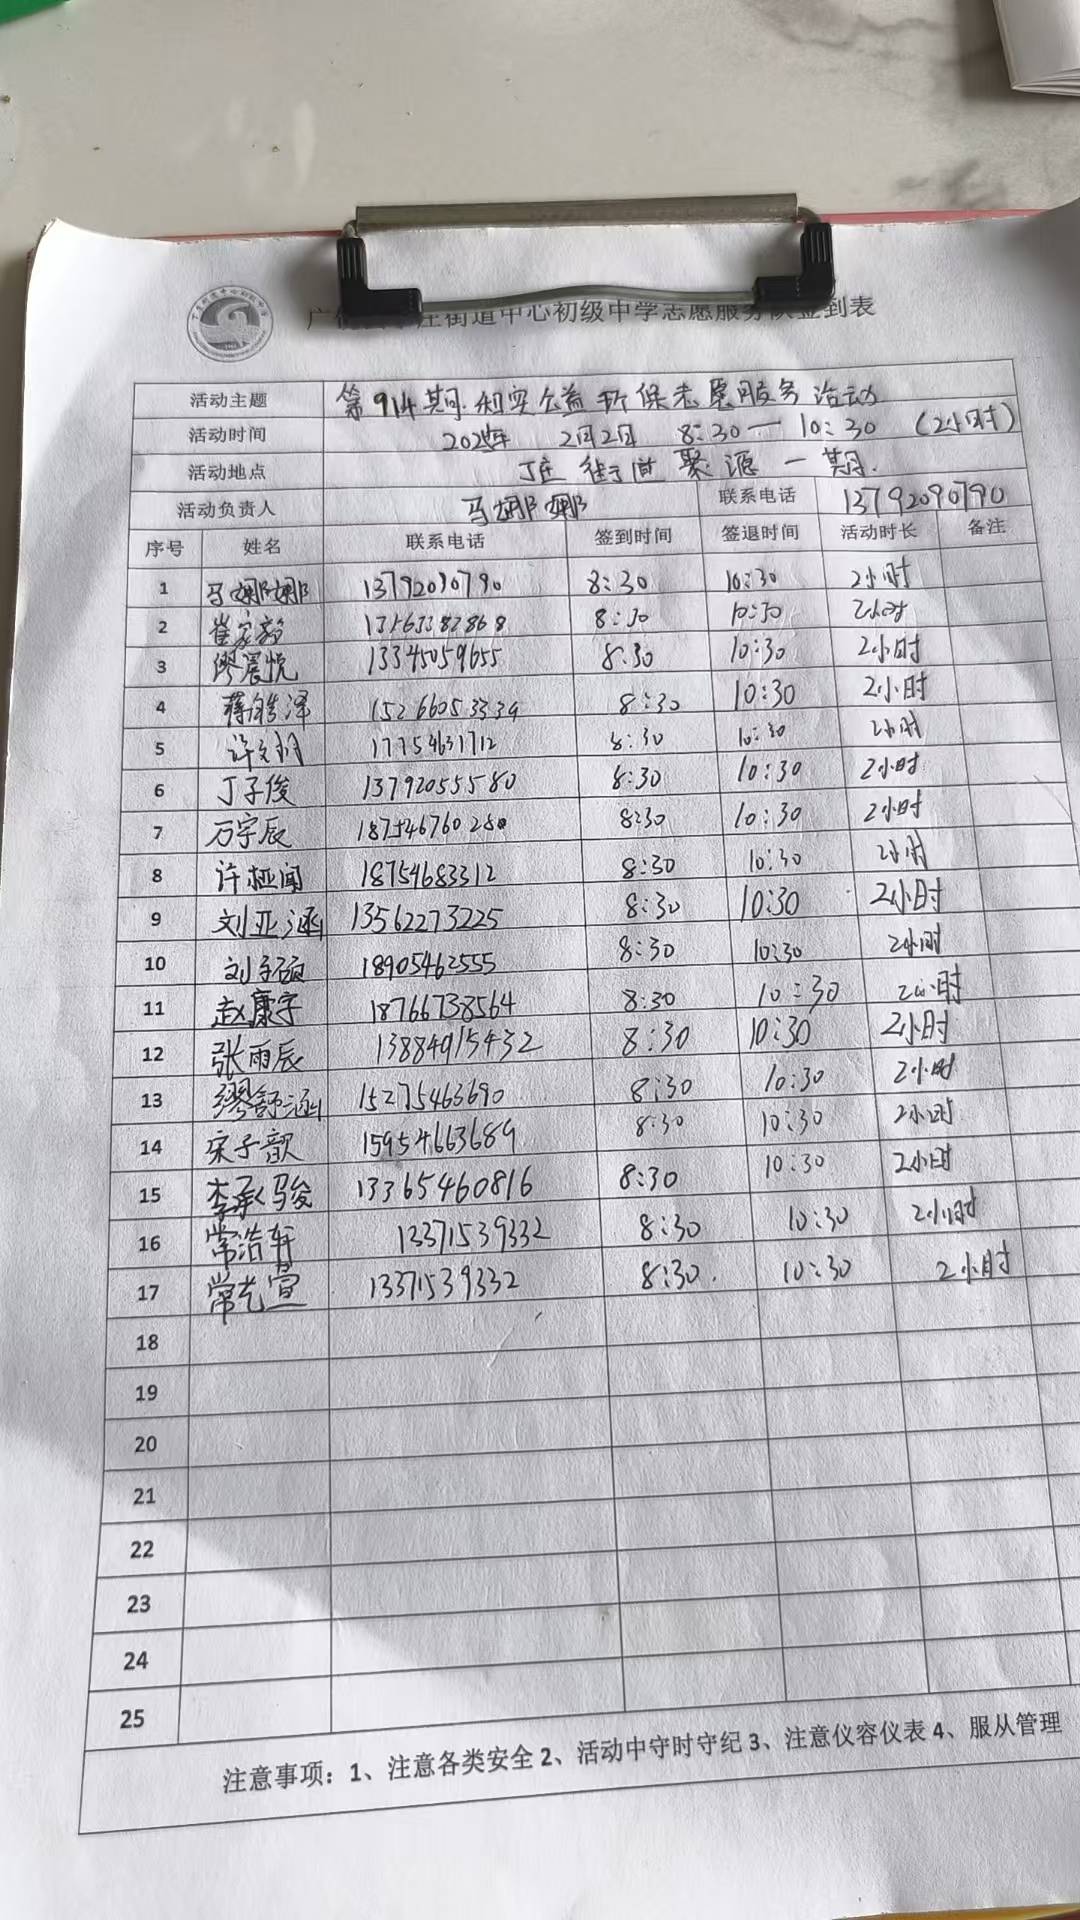 街道中心初级中学志愿服务队签到表
活动主题 第914期.和实公益环保志愿服务活动
活动时间 2月2日 8:30一10:30 (2小时)
活动地点 丁庄街道聚源一期.
活动负责人 马娜娜 联系电话 13792090790
序号 姓名 联系电话 签到时间 签退时间 活动时长 备注
1 马娜娜 13792090790 8:30 10:30 2小时
2 崔家毅 13563382868 8:30 10:30 2小时
3 缪晨悦 13345059655 8:30 10:30 2小时
4 蒋皓泽 15266053339 8:30 10:30 2小时
5 17754631712 8:30 10:30 2小时
6 丁子俊 13792055580 8:30 10:30 2小时
7 万宇辰 18754676028 8:30 10:30 2小时
8 许桠闻 18754683312 8:30 10:30 2小时
9 刘亚涵 13562273225 8:30 10:30 2小时
10 刘子硕 18905462555 8:30 10:30 2小时
11 赵康宇 18766738564 8:30 10:30 2小时
12 张雨辰 13884915432 8:30 10:30 2小时
13 缪舒涵 15275463690 8:30 10:30 2小时
14 宋子歆 15954663689 8:30 10:30 2小时
15 李承骏 13365460816 8:30 10:30 2小时
16 常浩轩 13371539332 8:30 10:30 2小时
17 常艺萱 13371539332 8:30. 10:30 2小时
18
19
20
21
22
23
24
25
注意事项：1、注意各类安全 2、活动中守时守纪 3、注意仪容仪表 4、服从管理